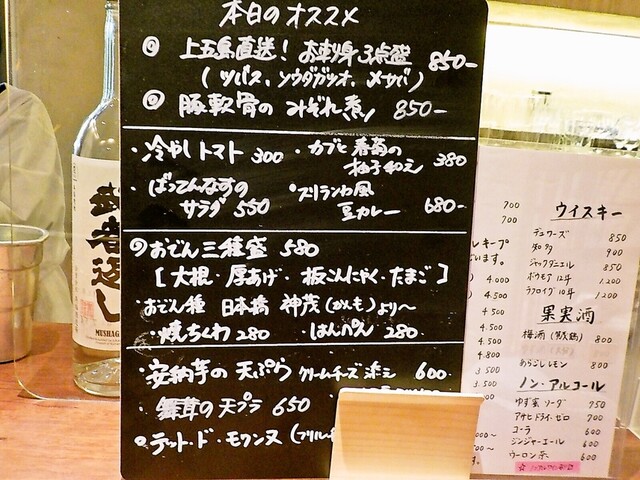 本日のオススメ
◎ 上五島直送！ お刺身3点盛 850-
（ツバス、ソウダガツオ、〆サバ）
◎ 豚軟骨の みぞれ煮 850-
・冷やしトマト 300
・カブと春菊の柚子和え 380
・ばってんなすのサラダ 550
・スリランカ風豆カレー 680-
◎おでん三種盛 580
[大根・厚あげ・板こんにゃく・たまご]
・おでん種 日本橋 神茂（かんも）より〜
・焼ちくわ 280 ・はんぺん 280
・安納芋の天ぷら クリームチーズ添え 600
・舞茸の天プラ 650
・テット・ド・モワンヌ（フリル
武者返し
MUSHAG
700
700
レキープ
います。
4.000
4.500
4.500
4.500
4.800
3.500
3.500
ウイスキー
デュワーズ 850
知多 900
ジャックダニエル 850
ボウモア 12年 1.200
ラフロイグ 10年 1.200
果実酒
梅酒 800
あらごしレモン 800
ノン・アルコール
ゆず蜜ソーダ 750
アサヒドライ・ゼロ 700
コーラ 600
ジンジャーエール 600
ウーロン茶 600